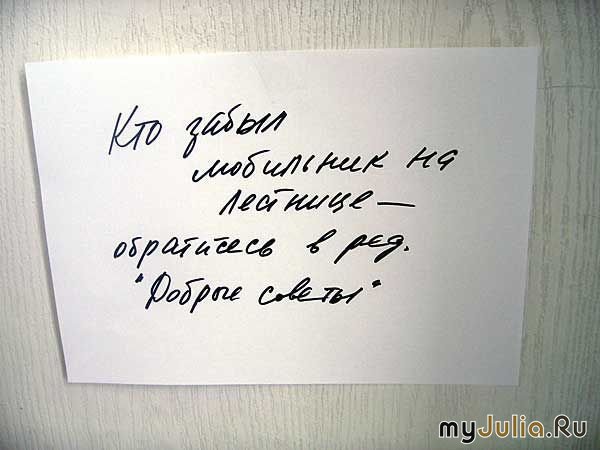 Кто забыл
мобильник на
лестнице —
обратитесь в ред.
"Добрые советы"
myJulia.Ru